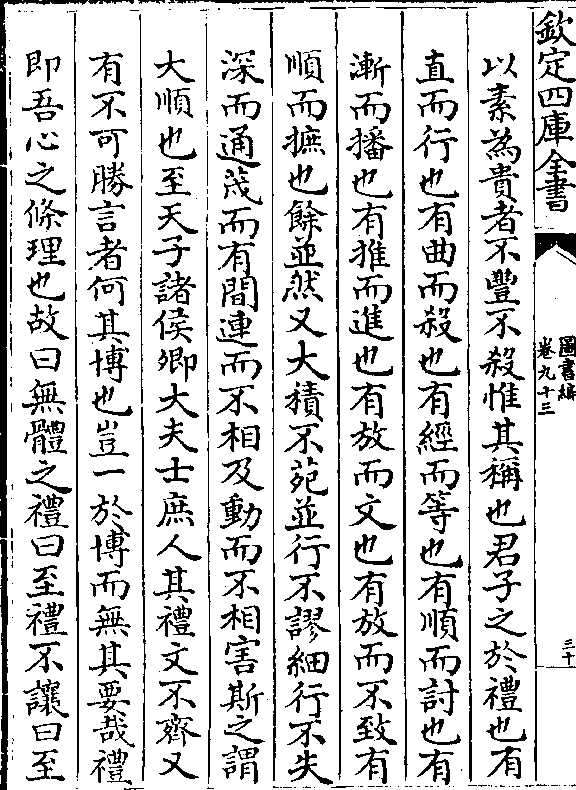 欽定四庫全書
圖書編
卷九十三
三十
以素為貴者不豐不殺惟其稱也君子之於禮也有
直而行也有曲而殺也有經而等也有順而討也有
漸而播也有推而進也有放而文也有放而不致有
順而摭也餘並然又大積不苑並行不謬細行不失
深而通茂而有間連而不相及動而不相害斯之謂
大順也至天子諸侯卿大夫士庶人其禮文不齊又
有不可勝言者何其博也豈一於博而無其要哉禮
即吾心之條理也故曰無體之禮曰至禮不讓曰至